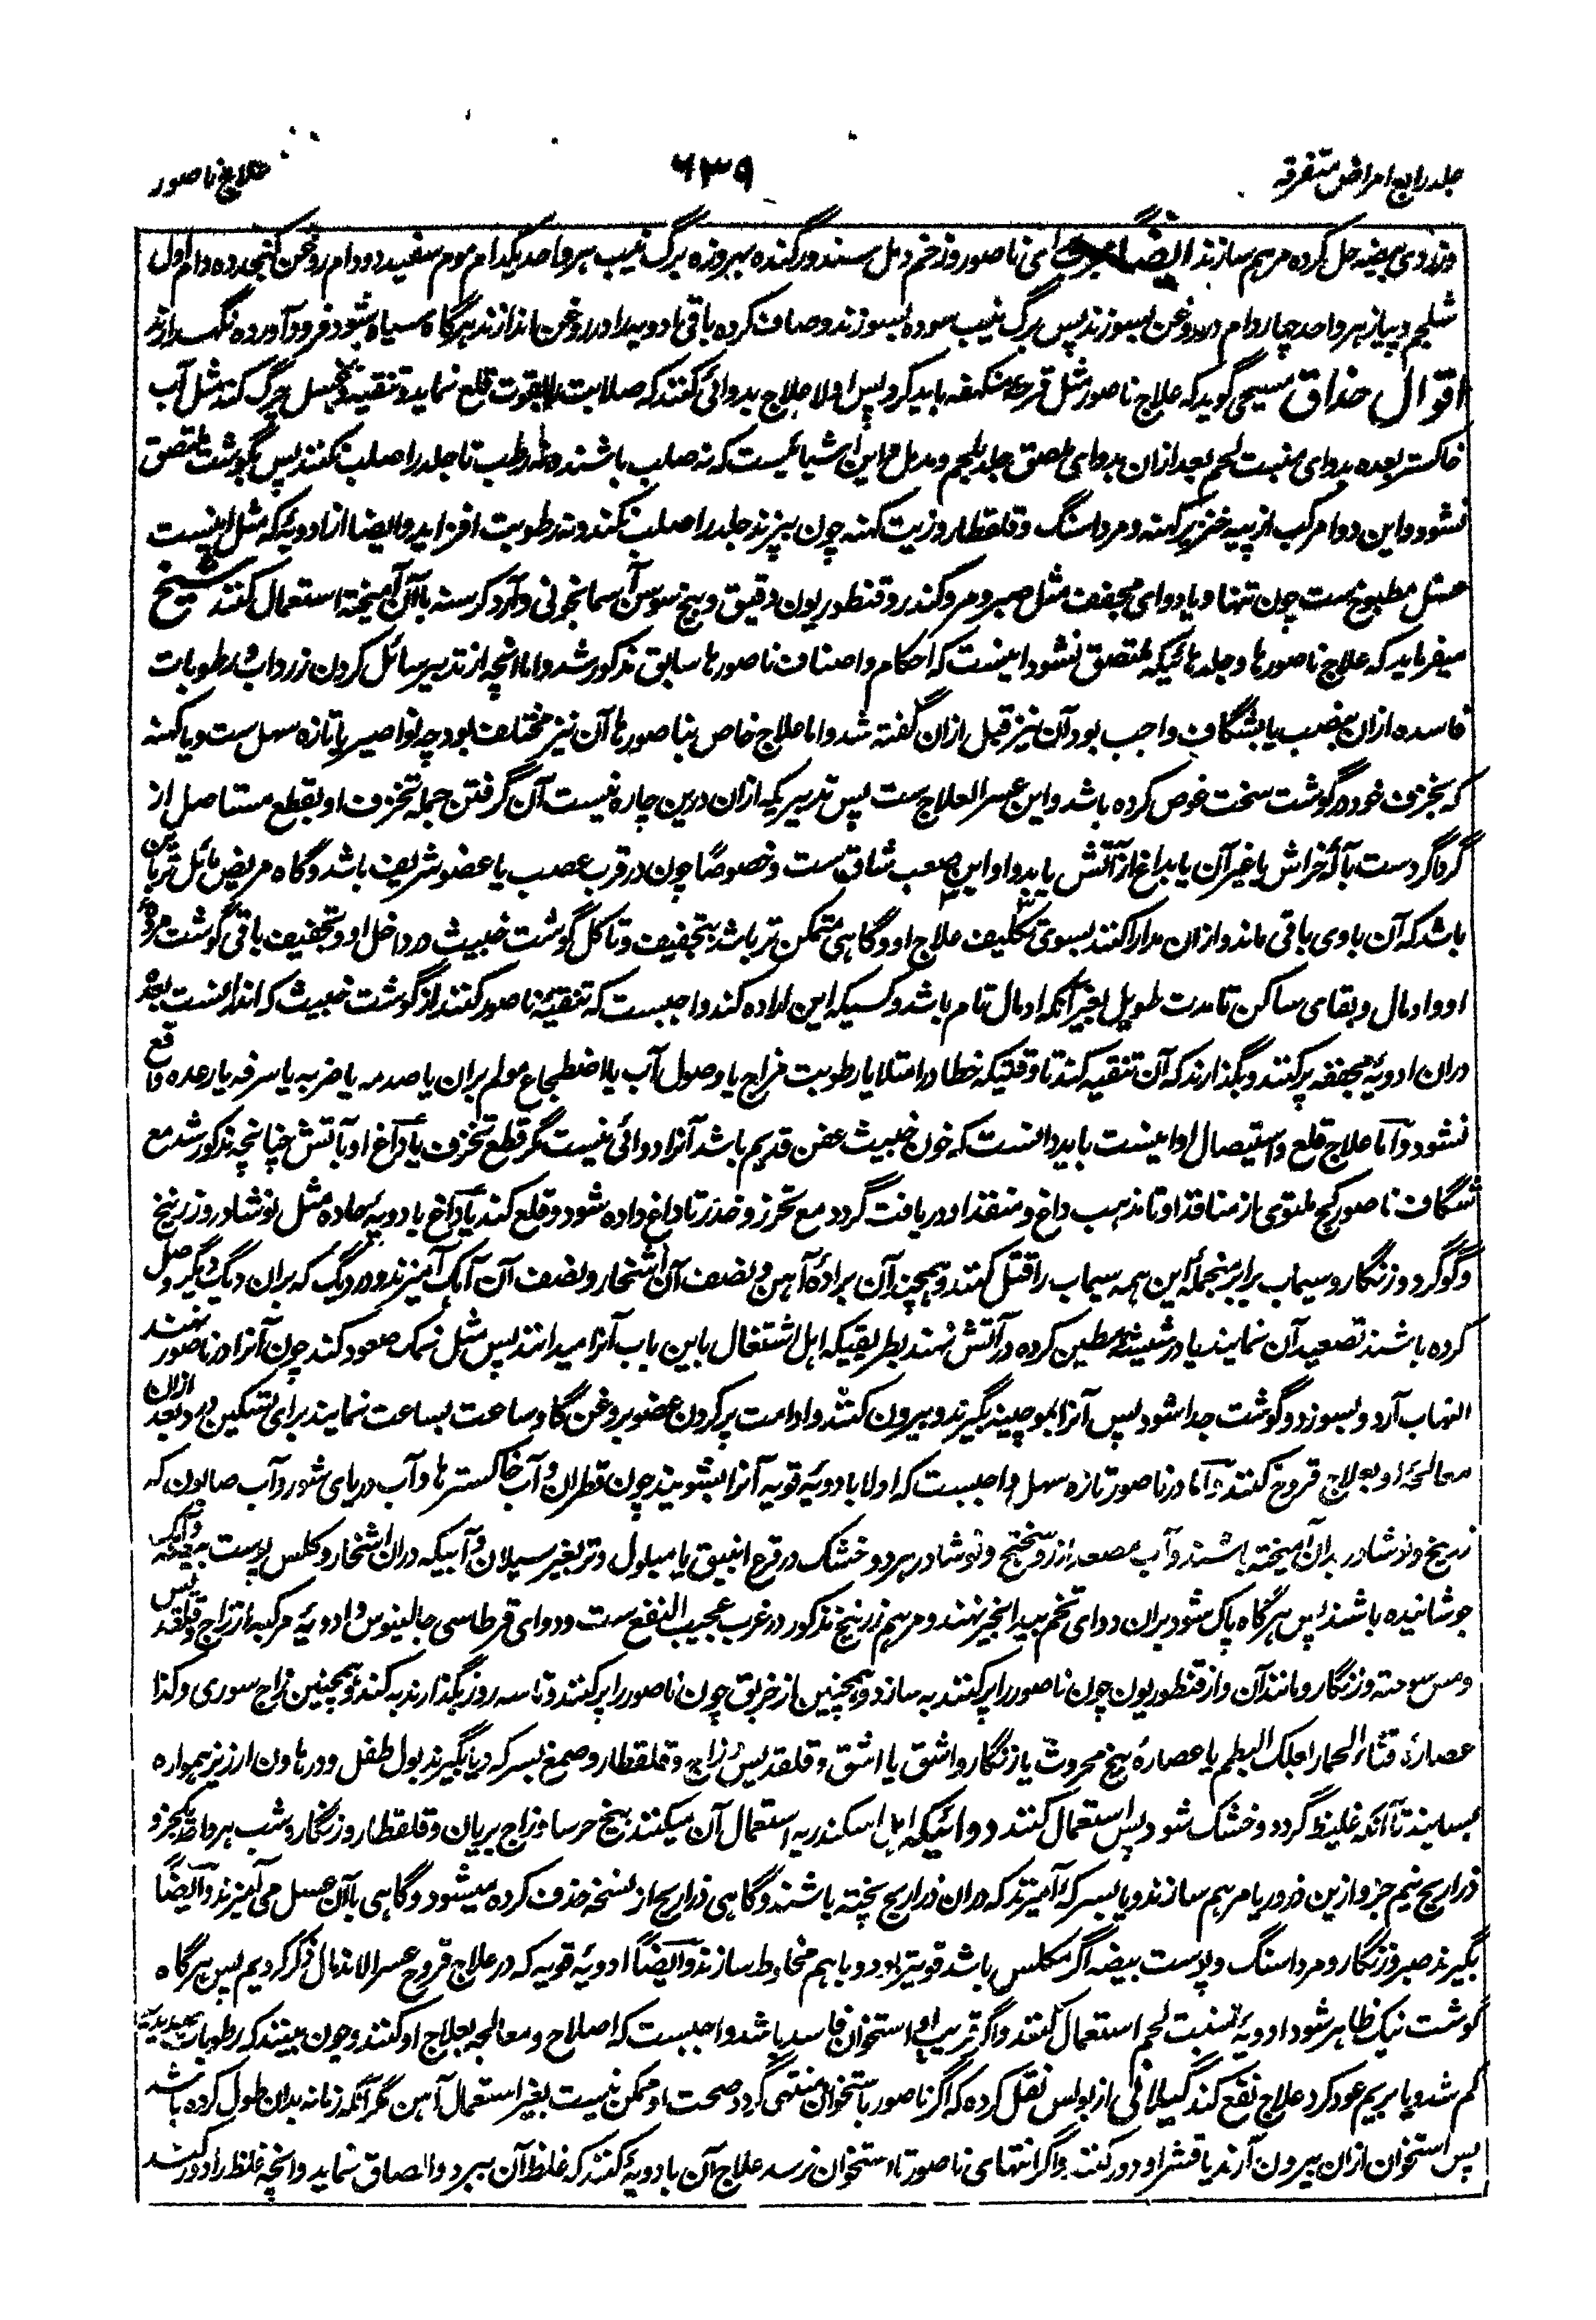 جلد رابع امراض متفرقه
۶۳۹
علاج ناصور
وزردی بیضه حل کرده مرهم سازند ایضا برای ناصور و زخم دمل سندور گنده بهروزه برگ نیب هر واحد یکدام موم سفید دو دام روغن کنجد ده دام اول
شلجم و پیاز هر واحد چهار دام در روغن بسوزند پس برگ نیب سوده بسوزند و صاف کرده باقی ادویه را در روغن اندازند هرگاه سیاه شود فرود آورده نگهدارند
اقوال حذاق مسیحی گوید که علاج ناصور مثل قرحه منکهفه باید کرد پس اولا علاج بدوائی کنند که صلابت را بقوت قلع نماید و تنقیه و غسل چرک کند مثل آب
خاکستر بعده بدوای منبت لحم بعد ازان بدوای ملصق جلد بلحم و مدمل و این اشیائیست که نه صلب باشند و نه رطب تا جلد را صلب نکنند پس بگوشت ملتصق
نشود و این دوا مرکب از پیه خنزیر کهنه و مرداسنگ و قلقطار و زیت کهنه چون بپزند جلد را صلب نکند و نه رطوبت افزاید و ایضا از ادویه که مثل اینست
عسل مطبوخ ست چون تنها و یا دوای مجفف مثل صبر و مر و کندر و قنطوریون دقیق و بیخ سوسن آسمانجونی و آرد کرسنه باآن آمیخته استعمال کنند شیخ
میفرماید که علاج ناصورها و جلدهائیکه ملتصق نشود اینست که احکام و اصناف ناصورها سابق مذکور شد و اما انچه از تدبیر سائل کردن زرداب و رطوبات
فاسده ازان بنصب یا بشگاف واجب بود آن نیز قبل ازان گفته شد و اما علاج خاص بناصورها آن نیز مختلف بود چه نواصیر یا تازه سهل ست و یا کهنه
که بخزف خود در گوشت سخت غوص کرده باشد و این عسر العلاج ست پس تدبیریکه ازان درین چاره نیست آن گرفتن جمله تخزف او بقطع مستاصل از
گرداگردست بآله خراش یا غیر آن یا بداغ از آتش یا بدوا و این صعب شاق ست و خصوصاً چون در قرب عصب یا عضو شریف باشد و گاه مریض مائل تر باین
باشد که آن باوی باقی ماند و ازان مدارا کنند بسوی تکلیف علاج او و گاهی متمکن تر باشد بتجفیف و تاکل گوشت خبیث در داخل او و تجفیف باقی گوشت مرده
او و ادمال و بقای ساکن تا مدت طویل بغیر آنکه ادمال تام باشد و کسیکه این اراده کند واجبست که تنقیه ناصور کنند از گوشت خبیث که اندرانست بعد
دران ادویه مجففه پر کنند و بگذارند که آن تنقیه کند تا وقتیکه خطا در امتلا یا رطوبت مزاج یا وصول آب یا اضطجاع مولم بران یا صدمه یا ضربه یا سرفه یا رعده واقع
نشود و اما علاج قلع و استیصال او اینست باید دانست که خون خبیث عفن قدیم باشد آنرا دوائی نیست مگر قطع تخزف یا داغ او بآتش چنانچه مذکور شد مع
شگاف ناصور کج ملتوی از منافذ او تا مذهب داغ و منفذ او دریافت گردد مع تحرز و حذر تا داغ داده شود و قلع کند یا داغ بادویه حاده مثل نوشادر و زرنیخ
و گوگرد و زنگار و سیماب برابر منجمله این همه سیماب را قتل کنند و همچند آن براده آهن و نصف آن اشخار و نصف آن آهک آمیزند و در دیگ که بران دیگ دیگر وصل
کرده باشند تصعید آن نمایند یا در شیشه مطین کرده در آتش نهند بطریقیکه اهل اشتغال باین باب آنرا میدانند پس مثل نمک صعود کند چون آنرا در ناصور نهند
التهاب آرد و بسوزد و گوشت جدا شود پس آنرا بموچینه بگیرند و بیرون کنند و ادامت پر کردن عضو بروغن گاو ساعت بساعت نمایند برای تسکین درد بعد ازان
معالجه او بعلاج قروح کنند و اما در ناصور تازه سهل واجبست که اولا بادویه قویه آنرا بشویند چون قطران و آب خاکسترها و آب دریای شور و آب صابون که
زرنیخ و نوشادر بدان آمیخته باشند و آب مصعد از روسختج و نوشادر هر دو خشک در قرع انبیق یا مبلول و تر بغیر سیلان و آبیکه دران اشخار و کلس پوست بیضه و آهک
جوشانیده باشند پس هرگاه پاک شود بران دوای تخم بیدانجیر نهند و مرهم زرنیخ مذکور در غرب عجیب النفع ست و دوای قرطاسی جالینوس و ادویه مرکبه از زاج و قلقدیس
و مس سوخته و زنگار و مانند آن و از قنطوریون چون ناصور را پر کنند به سازد و همچنین از خربق چون ناصور را پر کنند و تا سه روز بگذارند به کند و همچنین زاج سوری و کذا
عصاره قثاء الحمار بعلک البطم یا عصاره بیخ محروث یا زنگار و اشق یا اشق و قلقدیس و زاج و قلقطار و صمغ بسرکه و یا بگیرند بول طفل و در هاون ارزیز همواره
بسایند تا آنکه غلیظ گردد و خشک شود پس استعمال کنند دوائیکه اهل اسکندریه استعمال آن میکنند بیخ حرسا و زاج بریان و قلقطار و زنگار و شب هر واحد یکجزو
ذراریح نیم جزو ازین ذرور یا مرهم سازند و یا بسرکه آمیزند که دران ذراریح پخته باشند و گاهی ذراریح از نسخه حذف کرده میشود و گاهی باآن عسل می آمیزند و ایضاً
بگیرند صبر و زنگار و مرداسنگ و پوست بیضه اگر مکلس باشد قویتر بود و باهم مخلوط سازند و ایضاً ادویه قویه که در علاج قروح عسر الاندمال ذکر کردیم پس هرگاه
گوشت نیک ظاهر شود ادویه منبت لحم استعمال کنند و اگر قریب او استخوان فاسد باشد واجبست که اصلاح و معالجه بعلاج او کنند و چون بینند که رطوبات صدیدیه
کم شد و یا بریم عود کرد علاج نفع کند گیلانی از بولس نقل کرده که اگر ناصور باستخوان منتهی گردد صحت او ممکن نیست بغیر استعمال آهن مگر آنکه زمانه بدان طول کرده باشد
پس استخوان ازان بیرون آرند یا قشر او دور کنند و اگر انتهای ناصور تا استخوان نرسد علاج آن بادویه کنند که غلظ آن ببرد و الصاق نماید و انچه غلظ را دور کند